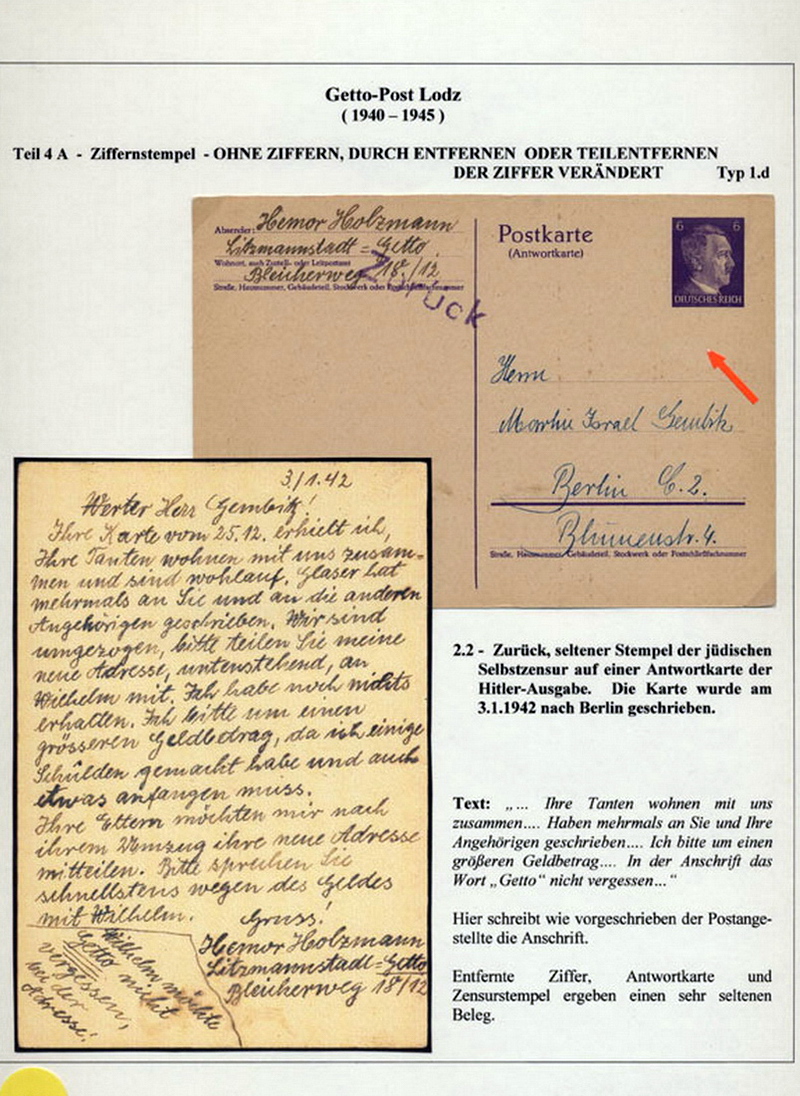 Getto-Post Lodz
( 1940 – 1945 )
Teil 4 A - Ziffernstempel - OHNE ZIFFERN, DURCH ENTFERNEN ODER TEILENTFERNEN
DER ZIFFER VERÄNDERT Typ 1.d
Absender: Hemor Holzmann
Litzmannstadt=Getto
Wohnort, auch Zustell- oder Leitpostamt
Bleicherweg 18/12
Straße, Hausnummer, Gebäudeteil, Stockwerk oder Postschließfachnummer
Zurück
Postkarte
(Antwortkarte)
6 6
DEUTSCHES REICH
Herrn
Martin Israel Gembitz
Berlin C. 2.
Blumenstr. 4.
Straße, Hausnummer, Gebäudeteil, Stockwerk oder Postschließfachnummer
3./1.42
Werter Herr Gembitz!
Ihre Karte vom 25.12. erhielt ich,
Ihre Tanten wohnen mit uns zusam=
men und sind wohlauf. Glaser hat
mehrmals an Sie und an die anderen
Angehörigen geschrieben. Wir sind
umgezogen, bitte teilen Sie meine
neue Adresse, untenstehend, an
Wilhelm mit. Ich habe noch nichts
erhalten. Ich bitte um einen
grösseren Geldbetrag, da ich einige
Schulden gemacht habe und auch
etwas anfangen muss.
Ihre Eltern möchten mir nach
ihrem Umzug ihre neue Adresse
mitteilen. Bitte sprechen Sie
schnellstens wegen des Geldes
mit Wilhelm. Gruss!
Hemor Holzmann
Litzmannstadt=Getto
Bleicherweg 18/12
Wilhelm möchte
Getto nicht
vergessen,
bei der
Adresse!
2.2 - Zurück, seltener Stempel der jüdischen
Selbstzensur auf einer Antwortkarte der
Hitler-Ausgabe. Die Karte wurde am
3.1.1942 nach Berlin geschrieben.
Text: „... Ihre Tanten wohnen mit uns
zusammen.... Haben mehrmals an Sie und Ihre
Angehörigen geschrieben.... Ich bitte um einen
größeren Geldbetrag.... In der Anschrift das
Wort „Getto" nicht vergessen..."
Hier schreibt wie vorgeschrieben der Postange-
stellte die Anschrift.
Entfernte Ziffer, Antwortkarte und
Zensurstempel ergeben einen sehr seltenen
Beleg.